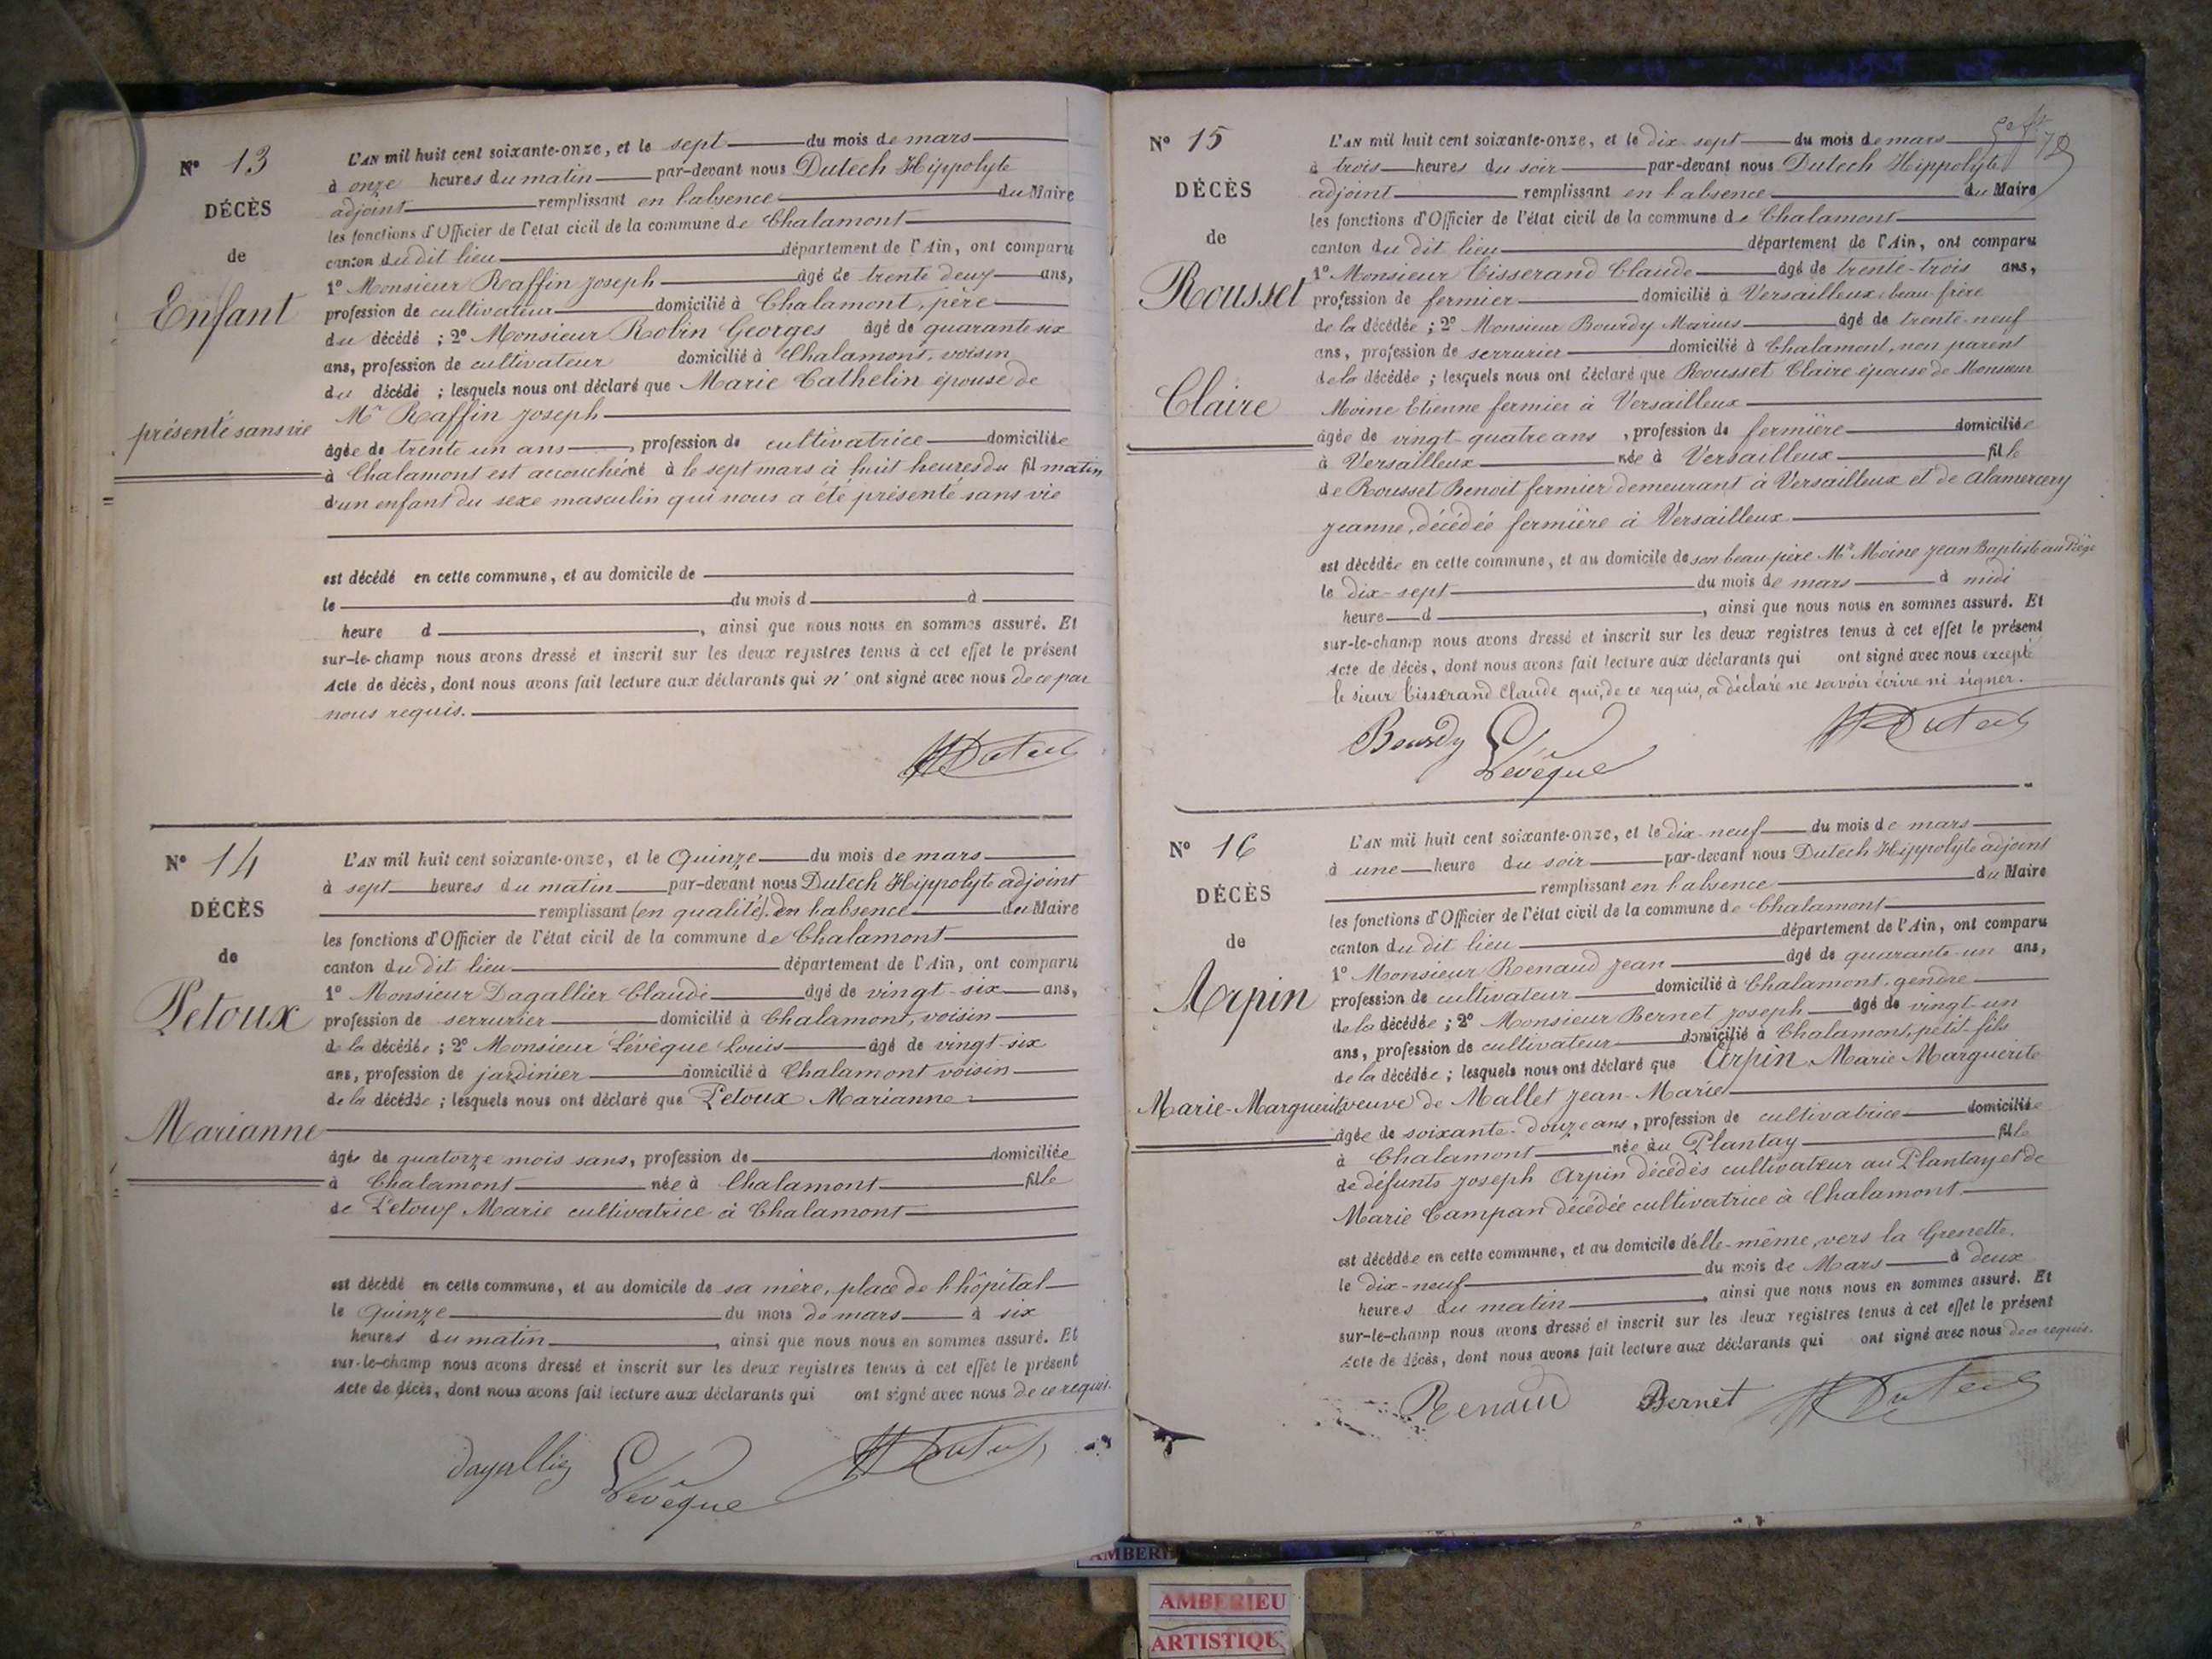 N° 13
DÉCÈS
de
Enfant
présenté sans vie
L'AN mil huit cent soixante-onze, et le sept du mois de mars
à onze heures du matin par-devant nous Dutech Hippolyte
adjoint remplissant en l'absence du Maire
les fonctions d'Officier de l'état civil de la commune de Chalamont
canton du dit lieu département de l'Ain, ont comparu
1° Monsieur Raffin Joseph âgé de trente deux ans,
profession de cultivateur domicilié à Chalamont, père
du décédé ; 2° Monsieur Robin Georges âgé de quarante six
ans, profession de cultivateur domicilié à Chalamont, voisin
du décédé ; lesquels nous ont déclaré que Marie Cathelin épouse de
Mr Raffin Joseph
âgée de trente un ans, profession de cultivatrice domiciliée
à Chalamont est accouchée né à le sept mars à huit heures du fil matin
d'un enfant du sexe masculin qui nous a été présenté sans vie
est décédé en cette commune, et au domicile de
le du mois d à
heure d , ainsi que nous nous en sommes assuré. Et
sur-le-champ nous avons dressé et inscrit sur les deux registres tenus à cet effet le présent
Acte de décès, dont nous avons fait lecture aux déclarants qui n'ont signé avec nous de ce par
nous requis.
H Dutech
N° 14
DÉCÈS
de
Petoux
Marianne
L'AN mil huit cent soixante-onze, et le Quinze du mois de mars
à sept heures du matin par-devant nous Dutech Hippolyte adjoint
remplissant (en qualité) en l'absence du Maire
les fonctions d'Officier de l'état civil de la commune de Chalamont
canton du dit lieu département de l'Ain, ont comparu
1° Monsieur Dagallier Claude âgé de vingt-six ans,
profession de serrurier domicilié à Chalamont, voisin
de la décédée ; 2° Monsieur Lévêque Louis âgé de vingt six
ans, profession de jardinier domicilié à Chalamont voisin
de la décédée ; lesquels nous ont déclaré que Petoux Marianne
âgée de quatorze mois sans, profession de domiciliée
à Chalamont née à Chalamont fille
de Petoux Marie cultivatrice à Chalamont
est décédé en cette commune, et au domicile de sa mère, place de l'hôpital
le Quinze du mois de mars à six
heures du matin , ainsi que nous nous en sommes assuré. Et
sur-le-champ nous avons dressé et inscrit sur les deux registres tenus à cet effet le présent
Acte de décès, dont nous avons fait lecture aux déclarants qui ont signé avec nous de ce requis.
Dagallier Lévêque H Dutech
N° 15
DÉCÈS
de
Rousset
Claire
L'AN mil huit cent soixante-onze, et le dix sept du mois de mars
à trois heures du soir par-devant nous Dutech Hippolyte
adjoint remplissant en l'absence du Maire
les fonctions d'Officier de l'état civil de la commune de Chalamont
canton du dit lieu département de l'Ain, ont comparu
1° Monsieur Tisserand Claude âgé de trente-trois ans,
profession de fermier domicilié à Versailleux, beau frère
de la décédée ; 2° Monsieur Bourdy Marius âgé de trente-neuf
ans, profession de serrurier domicilié à Chalamont, non parent
de la décédée ; lesquels nous ont déclaré que Rousset Claire épouse de Monsieur
Moine Etienne fermier à Versailleux
âgée de vingt-quatre ans , profession de fermière domiciliée
à Versailleux née à Versailleux fille
de Rousset Benoit fermier demeurant à Versailleux et de Alamercery
Jeanne, décédée fermière à Versailleux
est décédée en cette commune, et au domicile de son beau-père Mr Moine Jean Baptiste au Piège
le dix-sept du mois de mars à midi
heure d , ainsi que nous nous en sommes assuré. Et
sur-le-champ nous avons dressé et inscrit sur les deux registres tenus à cet effet le présent
Acte de décès, dont nous avons fait lecture aux déclarants qui ont signé avec nous excepté
le sieur Tisserand Claude qui, de ce requis, a déclaré ne savoir écrire ni signer.
Bourdy Lévêque H Dutech
N° 16
DÉCÈS
de
Arpin
Marie-Marguerite
L'AN mil huit cent soixante-onze, et le dix-neuf du mois de mars
à une heure du soir par-devant nous Dutech Hippolyte adjoint
remplissant en l'absence du Maire
les fonctions d'Officier de l'état civil de la commune de Chalamont
canton du dit lieu département de l'Ain, ont comparu
1° Monsieur Renaud Jean âgé de quarante-un ans,
profession de cultivateur domicilié à Chalamont, gendre
de la décédée ; 2° Monsieur Bernet Joseph âgé de vingt-un
ans, profession de cultivateur domicilié à Chalamont, petit-fils
de la décédée ; lesquels nous ont déclaré que Arpin Marie Marguerite
veuve de Mallet Jean-Marie
âgée de soixante-douze ans, profession de cultivatrice domiciliée
à Chalamont née au Plantay fille
de défunts Joseph Arpin décédés cultivateur au Plantay et de
Marie Campan décédée cultivatrice à Chalamont
est décédée en cette commune, et au domicile d'elle-même, vers la Grenette.
le dix-neuf du mois de Mars à deux
heures du matin , ainsi que nous nous en sommes assuré. Et
sur-le-champ nous avons dressé et inscrit sur les deux registres tenus à cet effet le présent
Acte de décès, dont nous avons fait lecture aux déclarants qui ont signé avec nous de ce requis.
Renaud Bernet H Dutech
AMBERIEU
ARTISTIQU